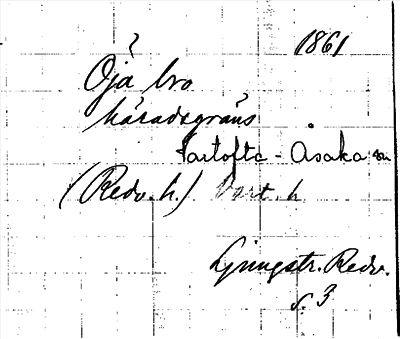 1861
Öjå bro
häradsgräns
Vartofta - Åsaka sn
(Redv. h.) Vart. h
Ljungstr. Redv.
s. 3